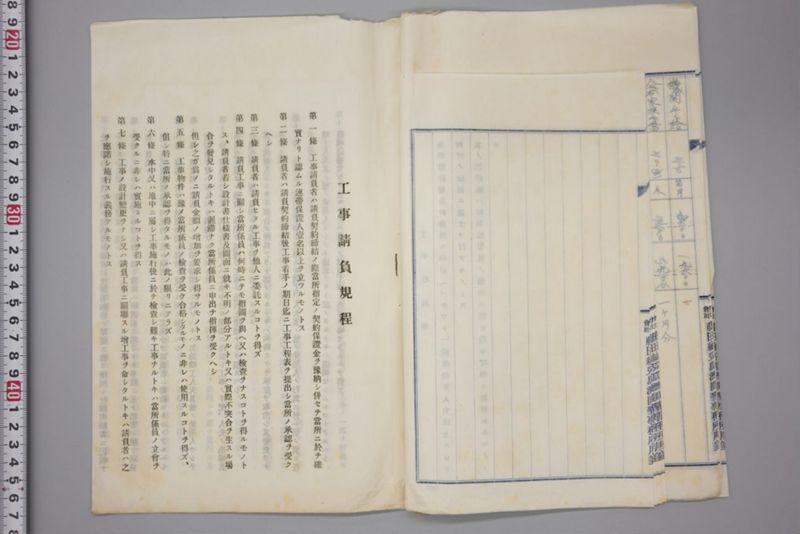 工事請負規程
第一條　工事請負者ハ請負契約締結ノ際當所指定ノ契約保證金ヲ豫納シ併セテ當所ニ於テ確
實ナリト認ムル連帶保證人壹名以上ヲ立ツルモノトス
第二條　請負者ハ請負契約締結後工事着手ノ期日迄ニ工事工程表ヲ提出シ當所ノ承認ヲ受ク
ヘシ
第三條　請負者ハ請負ヒタル工事ヲ他人ニ委託スルコトヲ得ズ
第四條　請負工事ニ關シ當所係員ハ何時ニテモ指圖ヲ與ヘ又ハ檢査ヲナスコトヲ得ルモノト
ス、請負者若シ設計書仕樣書及圖面ニ就キ不明ノ部分アルトキ又ハ實際不突合ヲ生スル場
合ヲ發見シタルトキハ遲滯ナク當所係員ニ申出テ指揮ヲ受クヘシ
但シ之ガ爲メニ請負金額ノ增加ヲ要求シ得サルモノトス
第五條　工事物件ハ豫メ當所係員ノ檢査ヲ受ケ合格シタルモノニ非レハ使用スルコトヲ得ズ、
但シ特ニ當所ノ承認ヲ得タルモノハ此ノ限リニアラズ
第六條　水中又ハ地中ニ屬シ工事施行後ニ於テ檢査シ難キ工事ナルトキハ當所係員ノ立會ヲ
受クルニ非レハ實施スルコトヲ得ス
第七條　工事ノ設計變更ヲナシ又ハ請負工事ニ關聯スル增工事ヲ命シタルトキハ請負者ハ之
ヲ應諾シ施行スル義務アルモノトス
一ヶ月分